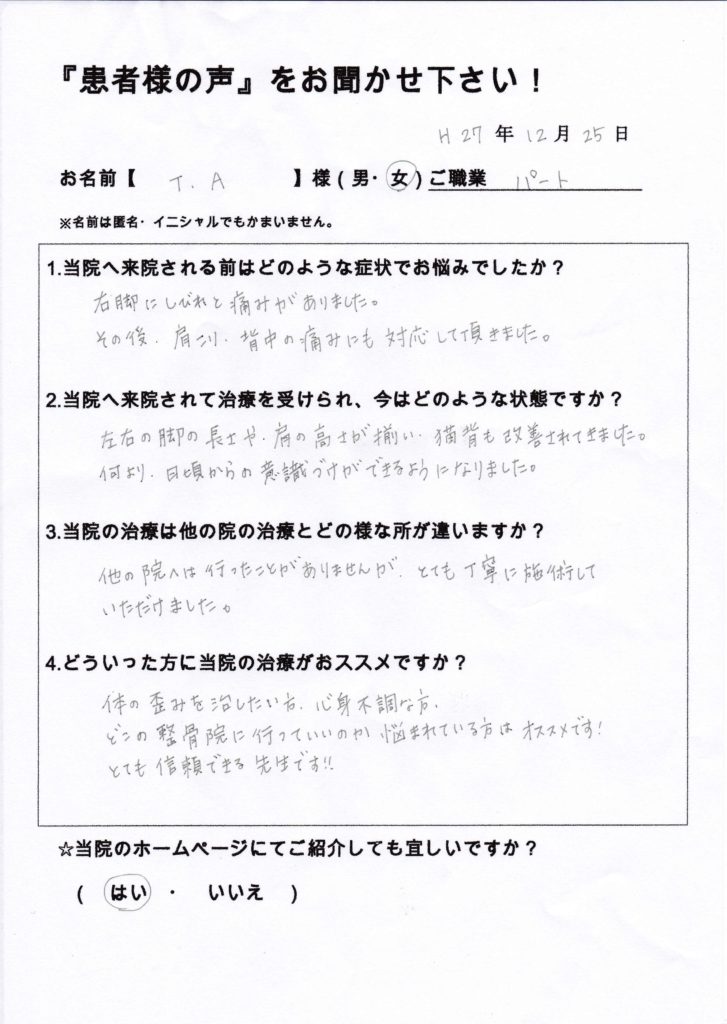 『患者様の声』をお聞かせ下さい！
H 27 年 12 月 25 日
お名前【 T.A 】様(男・女)ご職業 パート
※名前は匿名・イニシャルでもかまいません。
1.当院へ来院される前はどのような症状でお悩みでしたか？
右脚にしびれと痛みがありました。
その後、肩こり、背中の痛みにも対応して頂きました。
2.当院へ来院されて治療を受けられ、今はどのような状態ですか？
左右の脚の長さや、肩の高さが揃い、猫背も改善されてきました。
何より、日頃からの意識づけができるようになりました。
3.当院の治療は他の院の治療とどの様な所が違いますか？
他の院へは行ったことがありませんが、とても丁寧に施術して
いただけました。
4.どういった方に当院の治療がおススメですか？
体の歪みを治したい方、心身不調な方、
どこの整骨院に行っていいのか悩まれている方はオススメです!
とても信頼できる先生です!!
☆当院のホームページにてご紹介しても宜しいですか？
( はい ・ いいえ )